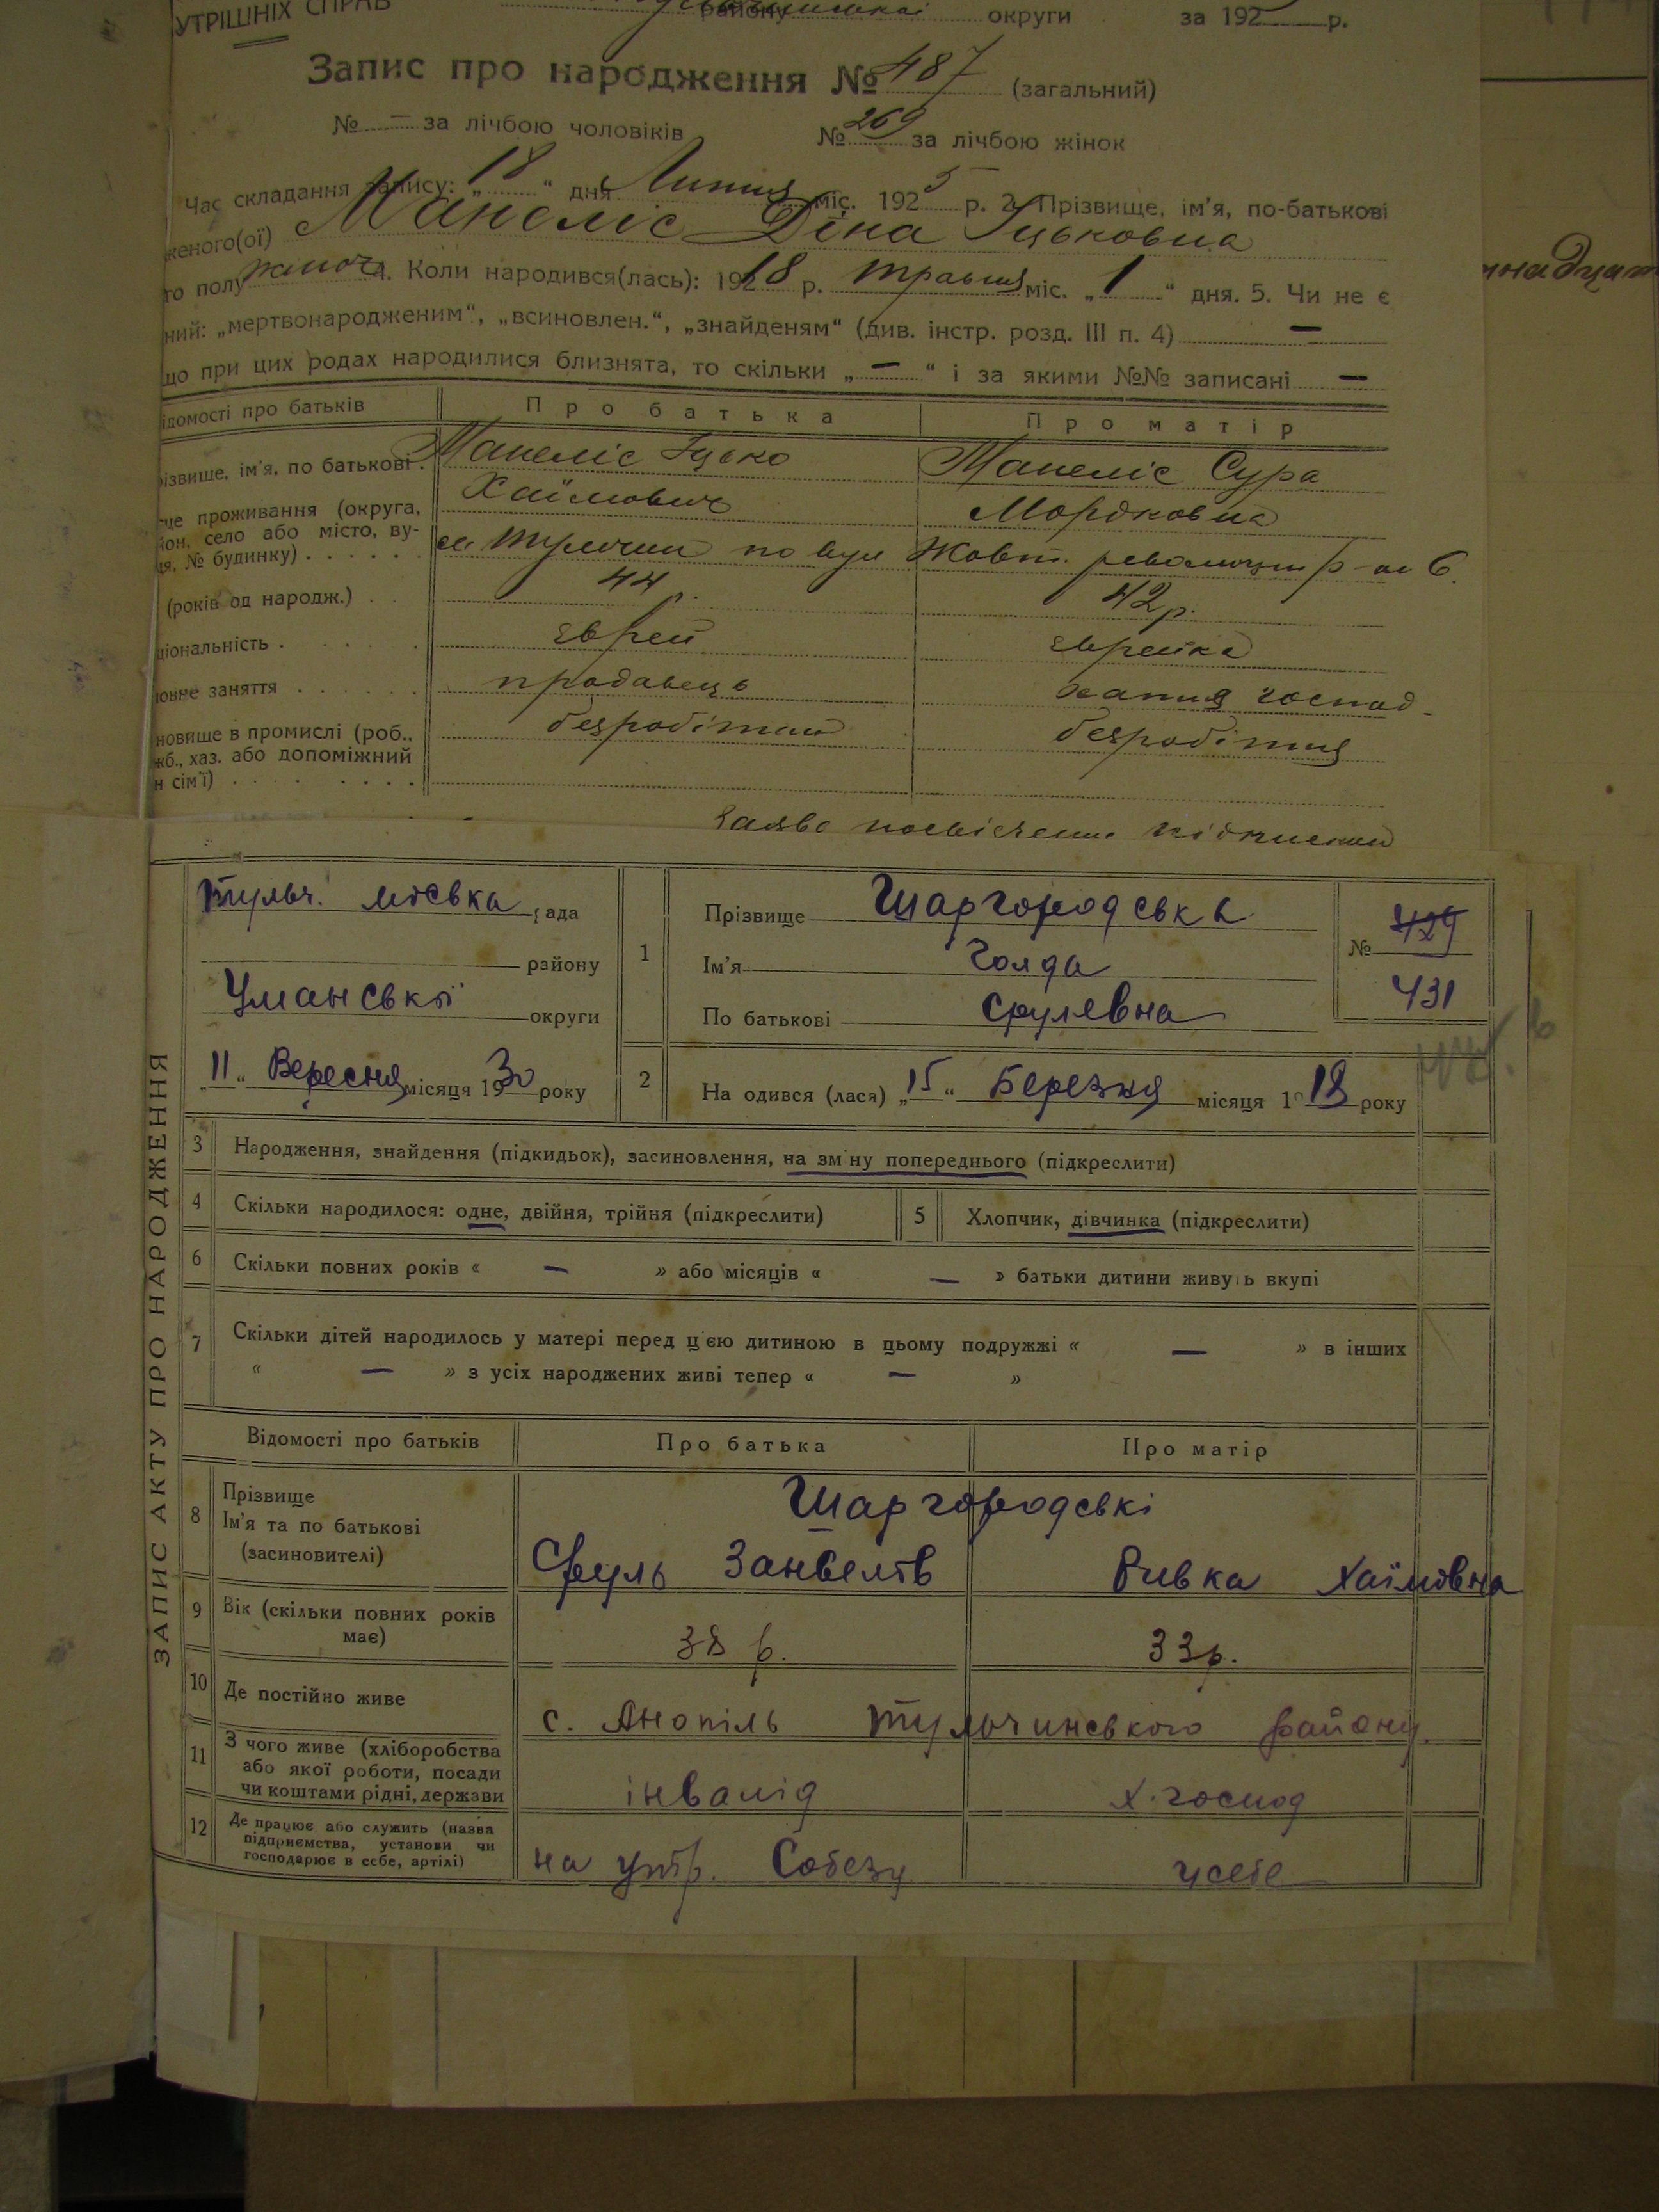 УТРІШНІХ СПРАВ району округи за 192 р.
Запис про народження № 487 (загальний)
№ — за лічбою чоловіків № 269 за лічбою жінок
Час складання запису: „18“ дня Липня міс. 1925 р. 2. Прізвище, ім'я, по-батькові
женого(ої) Манеліс Діна Іцьковна
го полу жіноч. 4. Коли народився(лась): 1918 р. травня міс. „1“ дня. 5. Чи не є
ний: „мертвонародженим“, „всиновлен.“, „знайденям“ (див. інстр. розд. III п. 4) —
що при цих родах народилися близнята, то скільки „—“ і за якими №№ записані —
ідомості про батьків Про батька Про матір
різвище, ім'я, по батькові . Манеліс Іцько Манеліс Сура
Хаїмович Мордковна
це проживання (округа,
йон, село або місто, ву-
ця, № будинку) . . . . . Тульчин по вул Жовт. революції
(років од народж.) . 44 р. 42 р.
ціональність . . . . . єврей єврейка
ловне заняття . . . . . . продавець хатня господ.
новище в промислі (роб.. безробітний безробітня
жб., хаз. або допоміжний
н сім'ї) . . . . . . . .
інадцят
Тульч. міська рада
району
Уманської округи
„11“ Вересня місяця 1930 року
1 Прізвище Шаргородська
Ім'я Голда
По батькові Срулевна
№ 429
431
2 На одився (лася) „15“ Березня місяця 1918 року
ЗАПИС АКТУ ПРО НАРОДЖЕННЯ
3 Народження, знайдення (підкидьок), засиновлення, на зм ну попереднього (підкреслити)
4 Скільки народилося: одне, двійня, трійня (підкреслити) 5 Хлопчик, дівчинка (підкреслити)
6 Скільки повних років « — » або місяців « — » батьки дитини живуть вкупі
7 Скільки дітей народилось у матері перед цєю дитиною в цьому подружжі « — » в інших
« — » з усіх народжених живі тепер « — »
Відомості про батьків Про батька Про матір
8 Прізвище Шаргородські
Ім'я та по батькові
(засновителі) Сруль Занвелів Ривка Хаїмовна
9 Вік (скільки повних років
має) 38 р. 33 р.
10 Де постійно живе с. Анопіль Тульчинського району
11 З чого живе (хліборобства
або якої роботи, посади
чи коштами рідні, держави інвалід х. господ
12 Де працює або служить (назва
підприємства, установи чи
господарює в себе, артілі) на утр. Собезу у себе